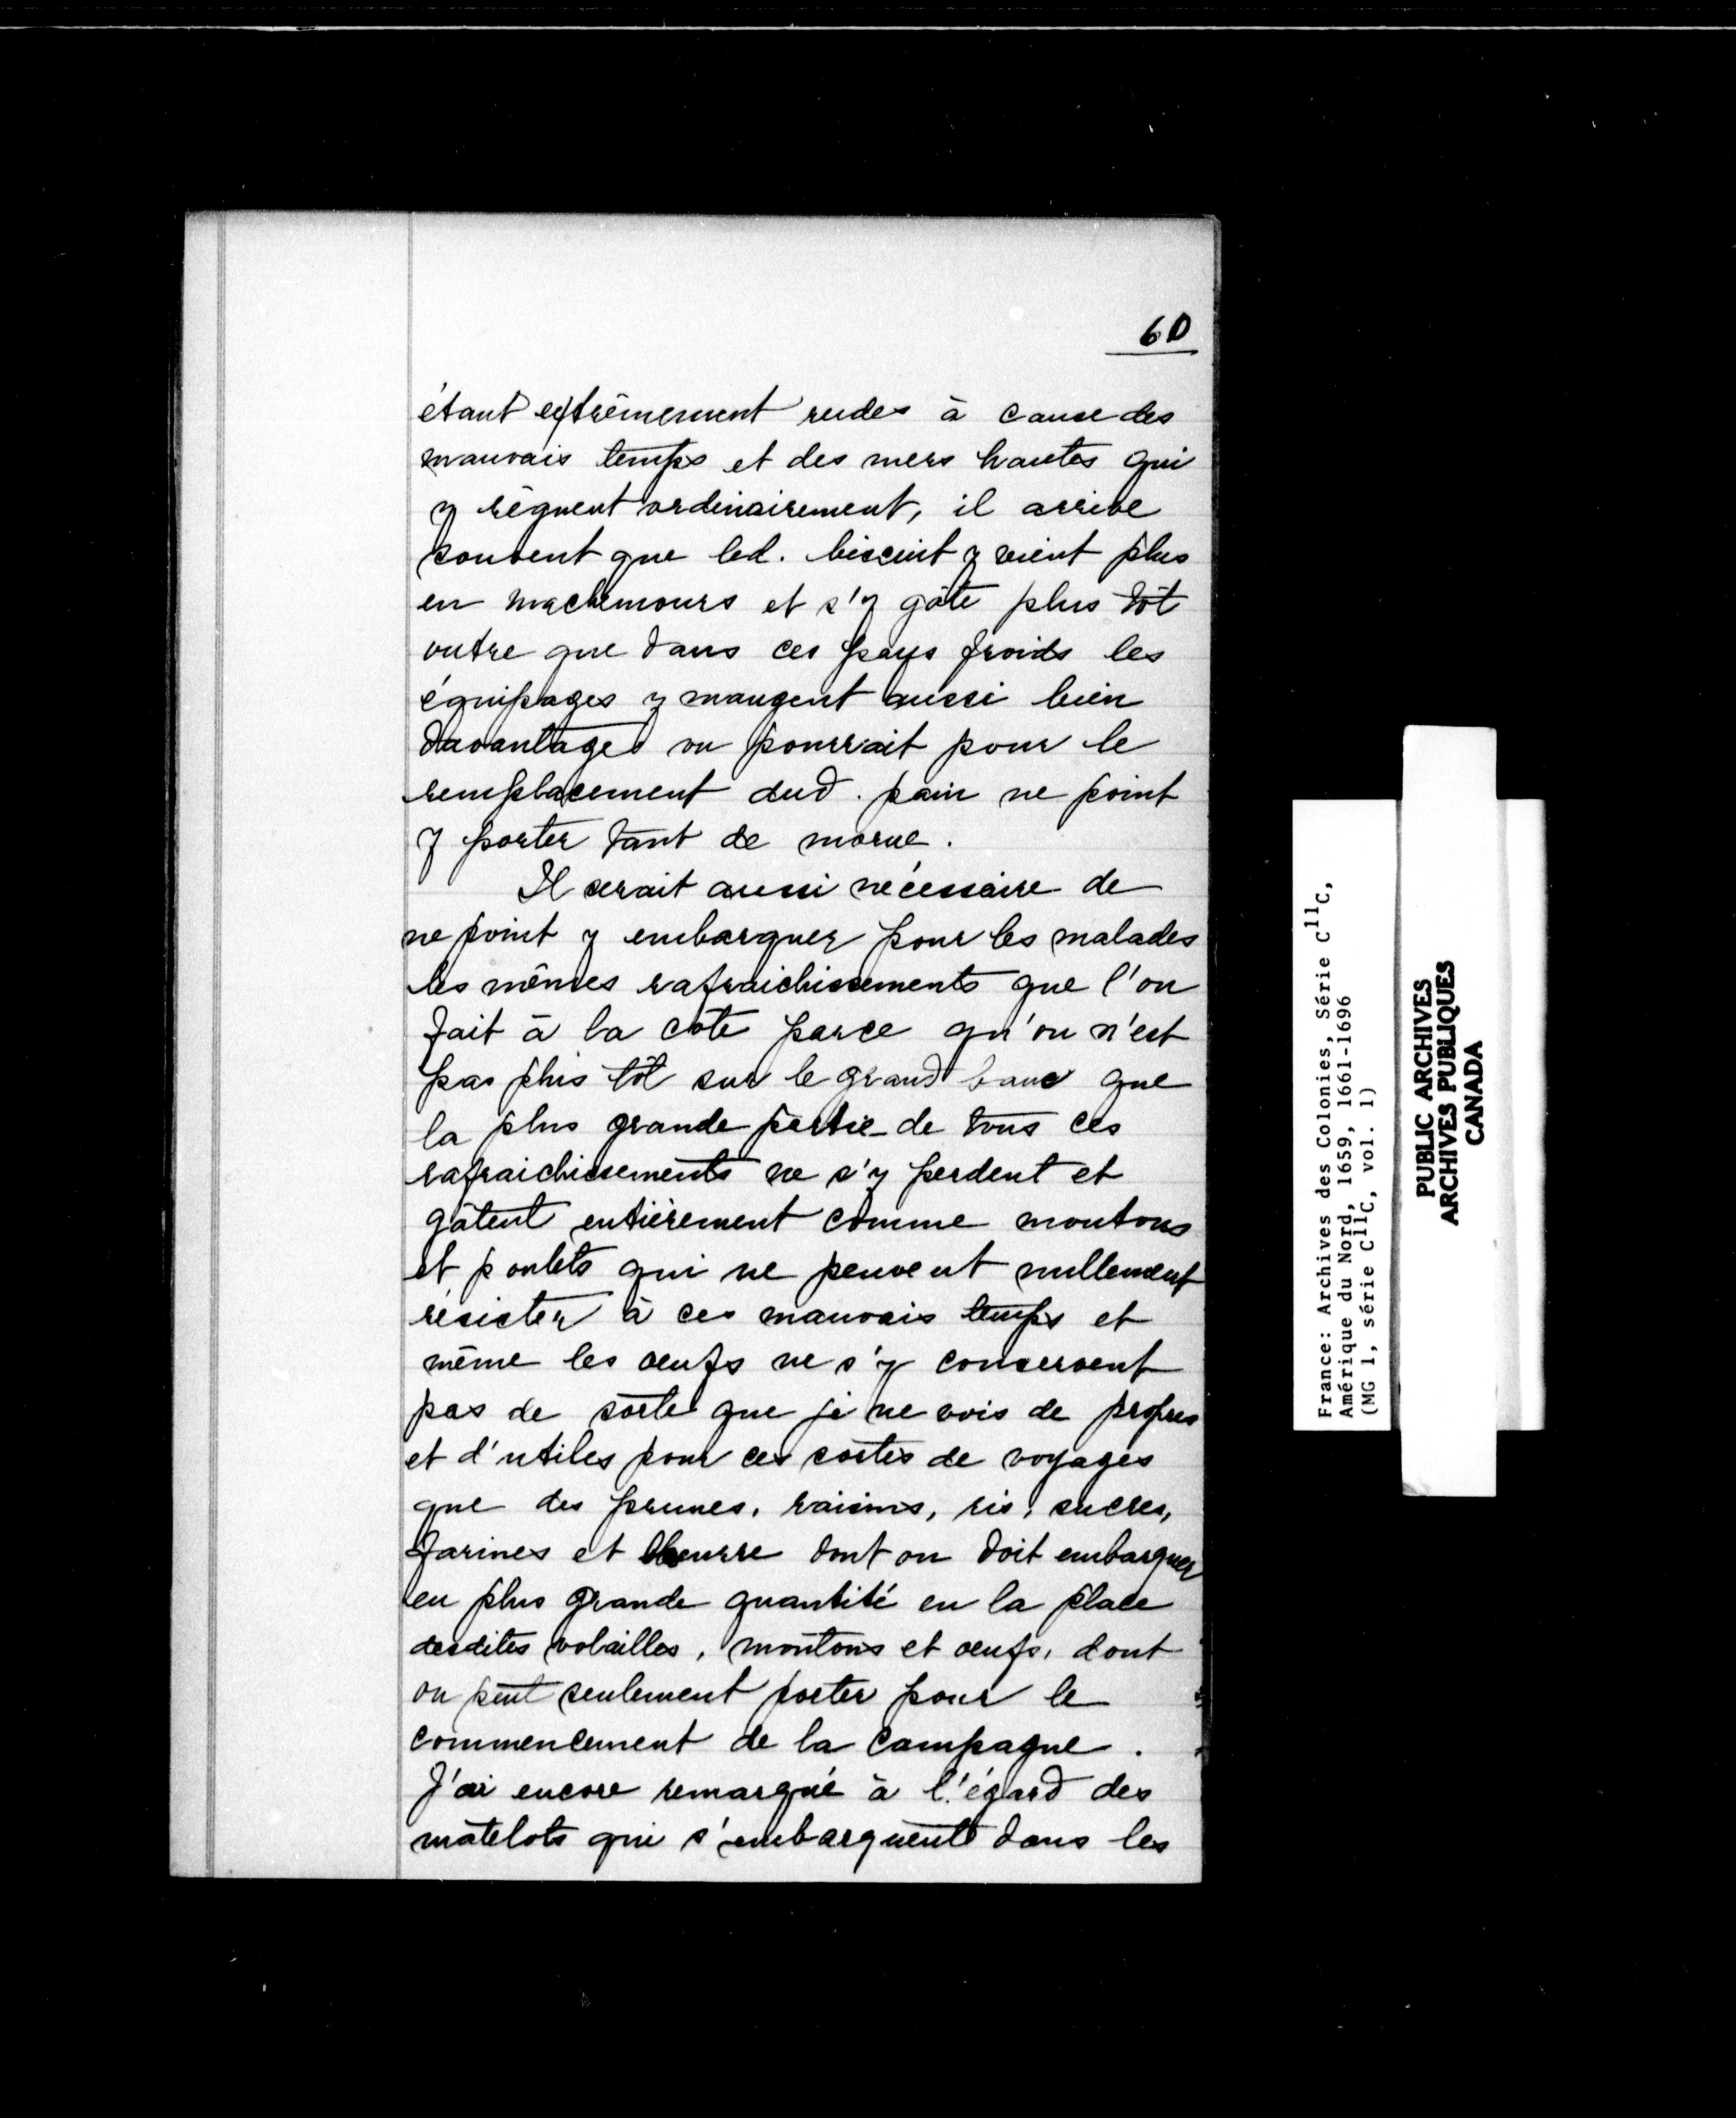 60
étant extrêmement rudes à cause des
mauvais temps et des mers hautes qui
y règnent ordinairement, il arrive
souvent que led. biscuit y vient plus
en machemours et s'y gâte plus tôt
outre que dans ces pays froids les
équipages y mangent aussi bien
davantage on pourrait pour le
remplacement dud. pain ne point
y porter tant de morue.
Il serait aussi nécessaire de
ne point y embarquer pour les malades
les mêmes rafraichissements que l'on
fait à la côte parce qu'on n'est
pas plus tôt sur le grand banc que
la plus grande partie de tous ces
rafraichissements ne s'y perdent et
gâtent entièrement comme moutons
et poulets qui ne peuvent nullement
résister à ces mauvais temps et
même les oeufs ne s'y conservent
pas de sorte que je ne vois de propres
et d'utiles pour ces sortes de voyages
que des prunes, raisins, ris, sucres,
farines et beurre dont on doit embarquer
en plus grande quantité en la place
desdites volailles, moutons et oeufs, dont
on peut seulement porter pour le
commencement de la campagne.
J'ai encore remarqué à l'égard des
matelots qui s'embarquent dans les
France: Archives des Colonies, Série C11C,
Amérique du Nord, 1659, 1661-1696
(MG 1, série C11C, vol. 1)
PUBLIC ARCHIVES
ARCHIVES PUBLIQUES
CANADA